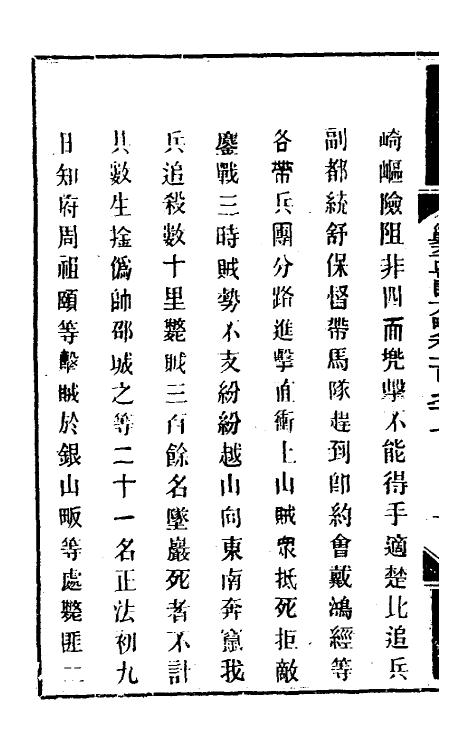 崎嶇險阻非四面兜擊不能得手適楚北追兵
副都統舒保督帶馬隊趕到卽約會戴鴻經等
各帶兵團分路進擊直衝上山賊衆抵死拒敵
鏖戰三時賊勢不支紛紛越山向東南奔竄我
兵追殺數十里斃賊三百餘名墜巖死者不計
其數生擒僞帥邵城之等二十一名正法初九
日知府周祖頤等擊賊於銀山畈等處斃匪二